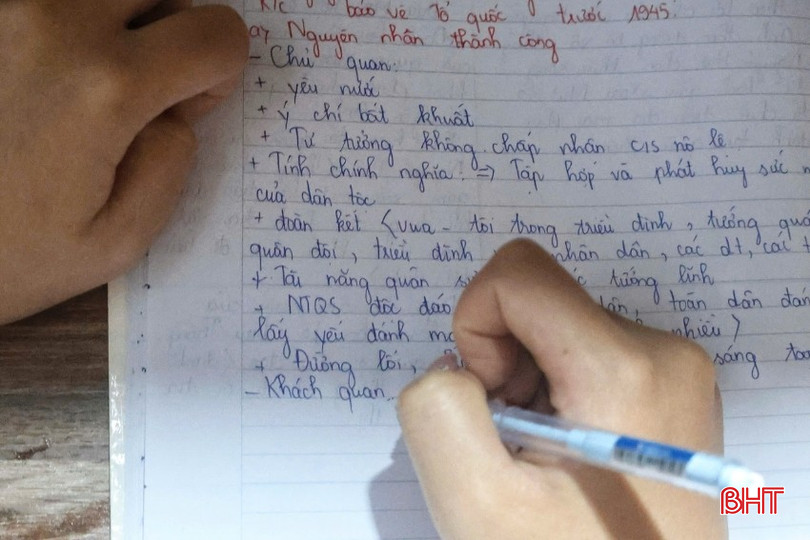 K/c bảo vệ Tổ quốc trước 1945.
a, Nguyên nhân thành công
- Chủ quan:
+ yêu nước
+ ý chí bất khuất
+ Tư tưởng không chấp nhận c/s nô lệ
+ Tính chính nghĩa => Tập hợp và phát huy sức
của dân tộc
+ đoàn kết (vua - tôi trong triều đình, tướng
quân đội, triều đình nhân dân, các dt, các
+ Tài năng quân tướng lĩnh
+ NTQS độc đáo dân, toàn dân
lấy yếu đánh nhiều)
+ Đường lối, sáng
- Khách quan
BHT